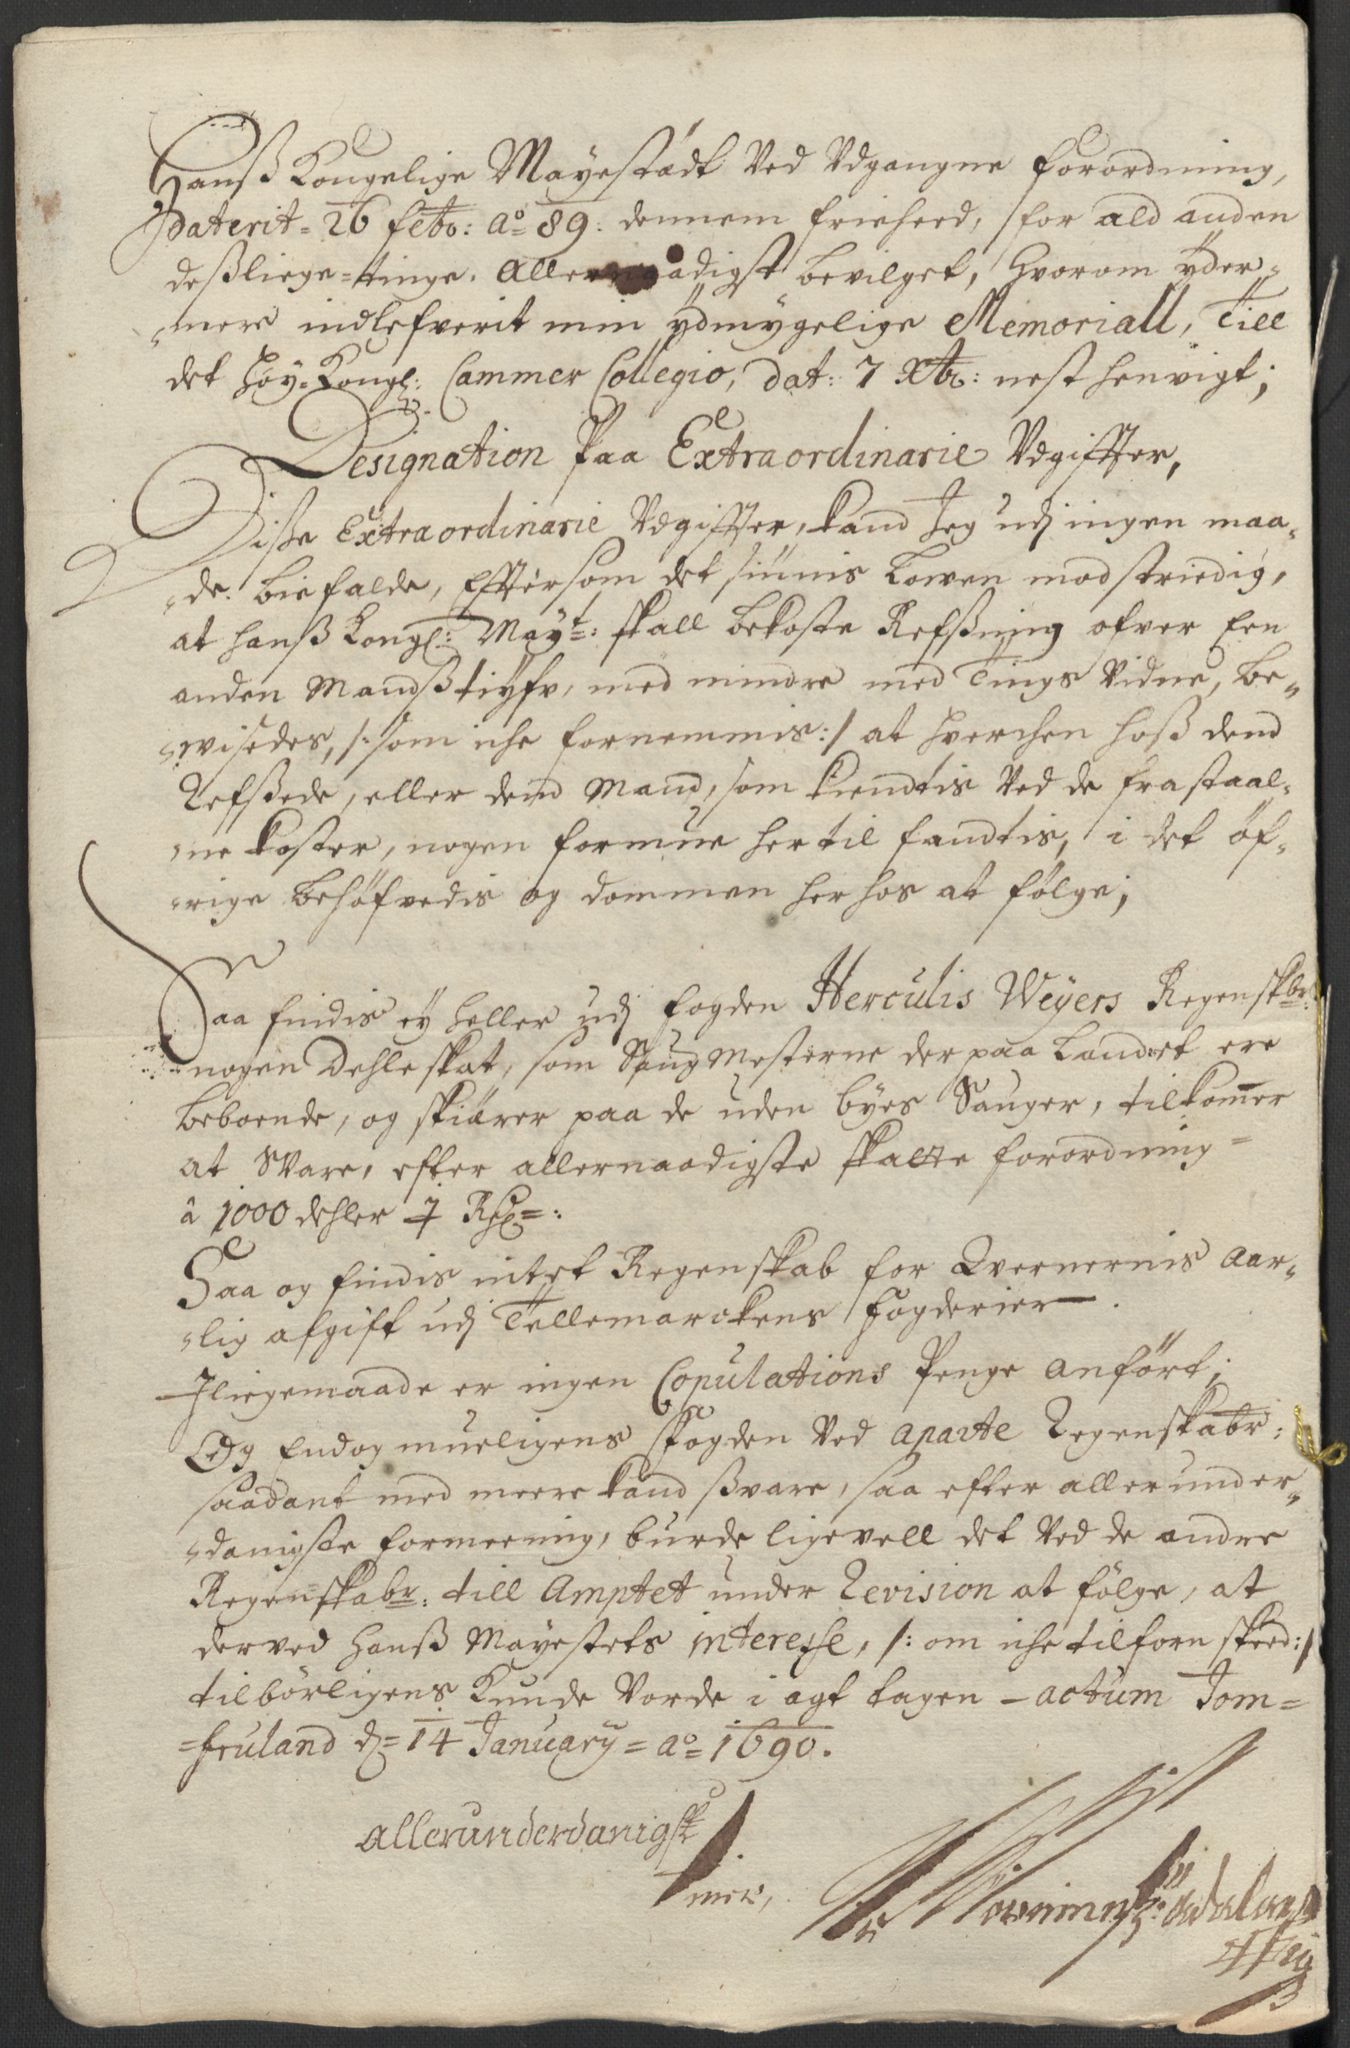 Hanß Kongelige Mayestædt Ved Udgangne forordning,
Daterit = 26 febr: a° 89: dennem frieheed, for ald anden
deßliege=tinge. Allernaadigst bevilget, hvorom ÿder„
„mere indlefverit min ÿdmygelige Memoriall, Till
det Høy-Kongl: Cammer Collegio, dat: 7 Xbr: nest henvigt;
Designation Paa Extraordinarie Udgiffter,
Disse Extraordinarie Udgiffter, kand Jeg udj ingen maa„
„de. biefalde, Efftersom det siunis Lowen modstriedig,
at hanß Kongl: Mayt: skall bekoste Refßning ofver Een
anden Mandß tiyfv, med mindre med Tings Vidne, be„
„wisedes, /: som iche fornemmis :/ at hverchen hoß dend
Refßede, eller dend Mand, som kiendtis Ved de frastaal„
„ne koster, nogen formue hertil fandtis, i det öf„
„rige behöfvedis og dommen herhos at fölge;
Saa findis eÿ heller udj fogden Herculis Weÿers Regenskbr:
nogen Dehleskat, som Saugmesterne der paa Landet ere
beboende, og skiærer paa de uden byes Sauger, tilkomer
at Svare, efter allernaadigste skatte forordning =
â 1000 dehler ½ Rdl=:
Saa og findis intet Regenskab for Qvernernis aar„
„lig afgift udj Tellemarckens fogderier.
Jliegemaade er ingen Copulations Penge anfört;
Og Endog mueligens fogden Ved aparte Regenskabr:
saadant med meere kand sßvare, saa efter allerunder„
„danigste formeening, burde ligevell det Ved de andre
Regenskabr: till Amptet under Revision at fölge, at
derved Hanß Mayestets interesse, /: om iche tilforn skeed :/
tilbörligens Kunde Vorde i agt tagen – actum Jom=
=fruland d= 14 January = a° 1690.
allerunderdanigst